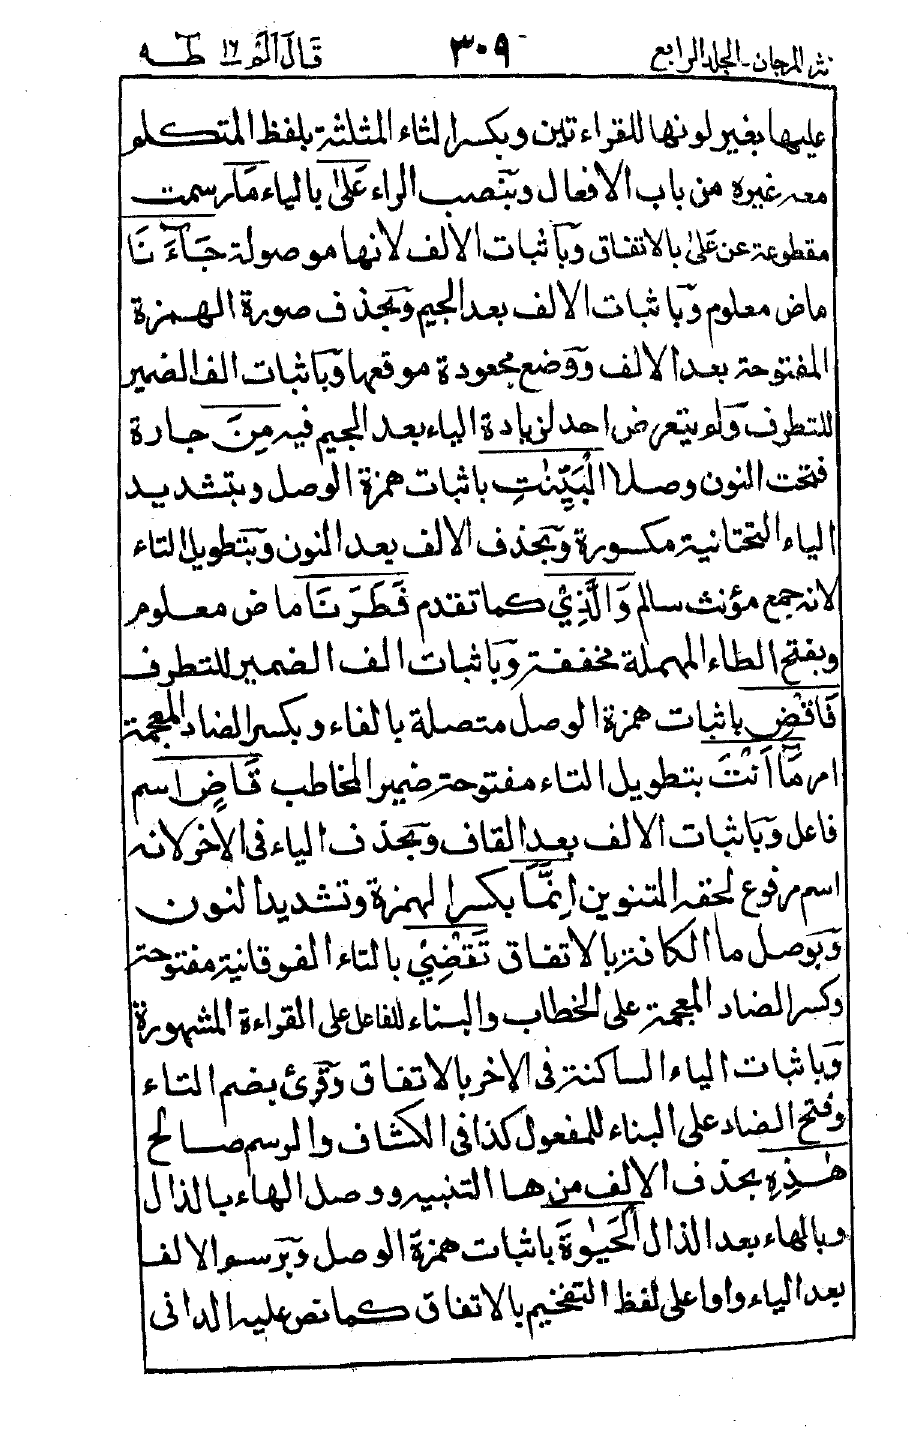 نثر المرجان - الجلد الرابع ٣٠٩ قَالَ اَلَمْ ١٦ طٰه
عليها بغير لونها للقراءتين وبكسر الثاء المثلثة بلفظ المتكلم
معه غيره من باب الافعال وبنصب الراء عَلٰى بالياء مَا رسمت
مقطوعة عن عَلٰى بالاتفاق وباثبات الالف لانها موصولة جَآءَنَا
ماض معلوم وباثبات الالف بعد الجيم وبحذف صورة الهمزة
المفتوحة بعد الالف ووضع مجعودة موقعها وباثبات الف الضمير
للتطرف ولم يتعرض احد لزيادة الياء بعد الجيم فيه مِنَ جارة
فتحت النون وصلا الْبَيِّنٰتِ باثبات همزة الوصل وبتشديد
الياء التحتانية مكسورة وبحذف الالف بعد النون وبتطويل التاء
لانه جمع مؤنث سالم وَالَّذِيْ كما تقدم فَطَرَنَا ماض معلوم
وبفتح الطاء المهملة مخففة وباثبات الف الضمير للتطرف
فَاقْضِ باثبات همزة الوصل متصلة بالفاء وبكسر الضاد المعجمة
امر مَآ اَنْتَ بتطويل التاء مفتوحة ضمير المخاطب قَاضٍ اسم
فاعل وباثبات الالف بعد القاف وبحذف الياء فى الاخر لانه
اسم مرفوع لحقه التنوين اِنَّمَا بكسر الهمزة وتشديد النون
وبوصل ما الكافة بالاتفاق تَقْضِيْ بالتاء الفوقانية مفتوحة
وكسر الضاد المعجمة على الخطاب والبناء للفاعل على القراءة المشهورة
وباثبات الياء الساكنة فى الاخر بالاتفاق وقرئ بضم التاء
وفتح الضاد على البناء للمفعول كذا فى الكشاف والرسم صالح
هٰذِهِ بحذف الالف من ها التنبيه ووصل الهاء بالذال
وبالهاء بعد الذال الْحَيٰوةَ باثبات همزة الوصل وبرسم الالف
بعد الياء واوا على لفظ التفخيم بالاتفاق كما نص عليه الدانى